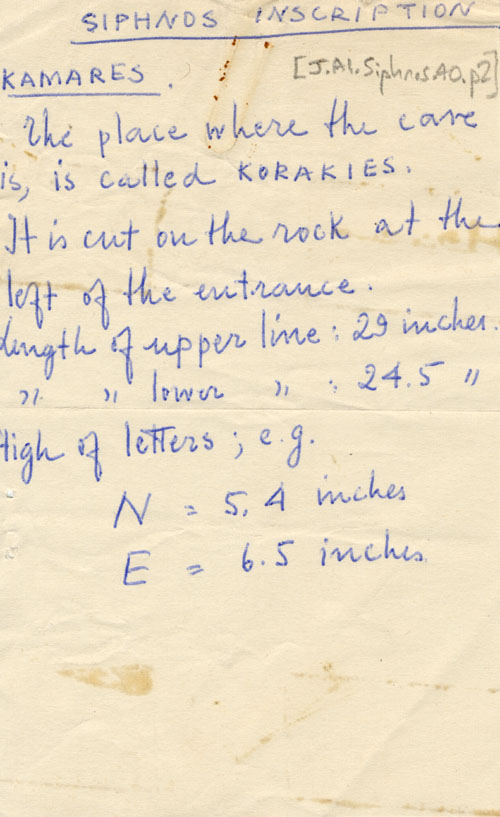 SIPHNOS INSCRIPTION
KAMARES.
[J.Al.SiphnosAO.p2]
The place where the cave
is, is called KORAKIES.
It is cut on the rock at the
left of the entrance.
Length of upper line : 29 inches.
" " lower " : 24.5 "
High of letters ; e.g.
N = 5.4 inches
E = 6.5 inches